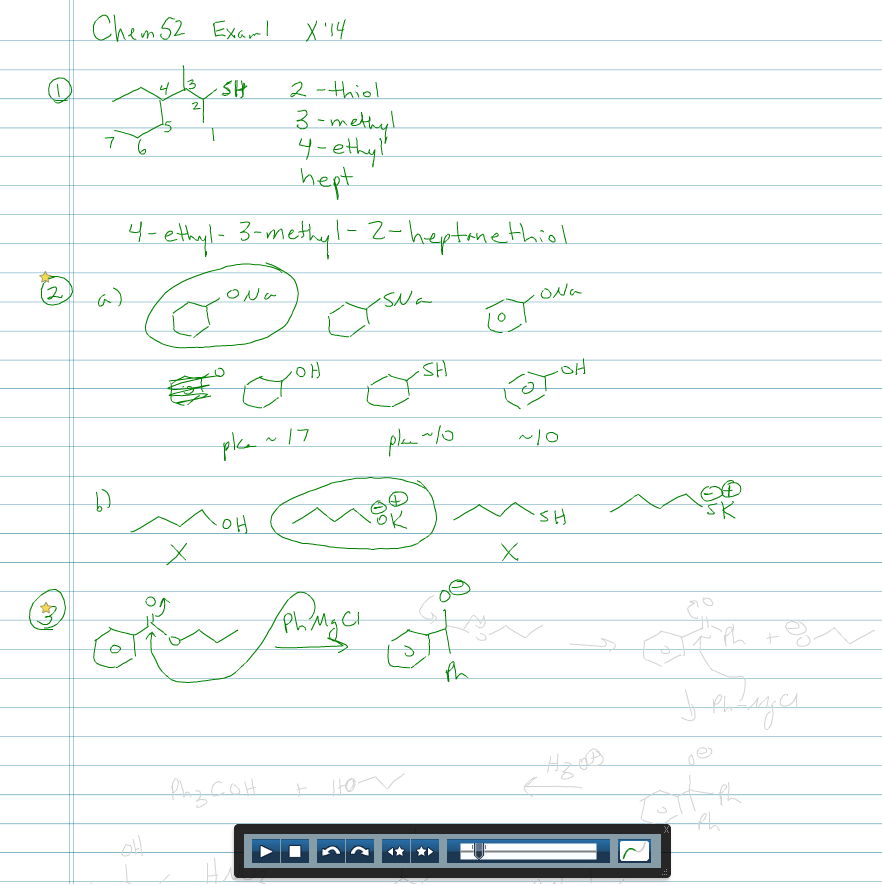 Chem 52 Exam 1 X '14
1
4 3 SH 2 -thiol
2
5 1 3 -methyl
7 6 4 -ethyl
hept
4-ethyl-3-methyl-2-heptanethiol
2 a) ONa SNa ONa
O OH SH OH
pka ~ 17 pka ~10 ~10
b) OH ⊖ ⊕ OK SH ⊖ ⊕ SK
X X
3 O O PhMgCl O⊖ Ph
O O Ph + ⊖O
Ph-MgCl
Ph3COH + HO H3O⊕ O⊖ Ph
Ph
OH